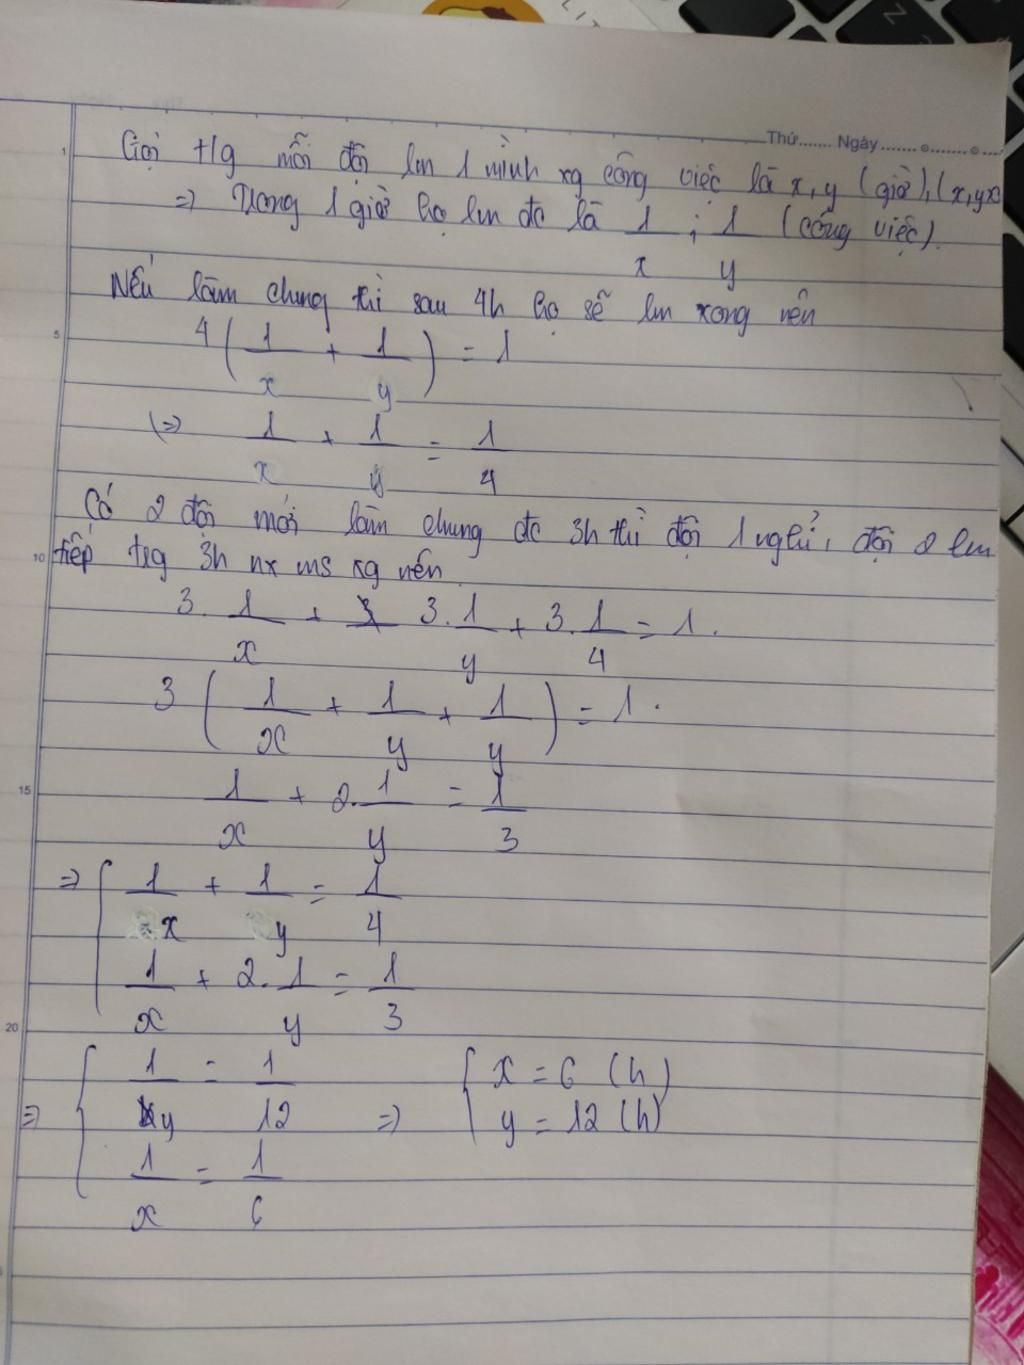 Thứ....... Ngày....... 
Gọi tg mỗi đội lm 1 mình xg công việc là x, y (giờ), (x, y>
=> Trong 1 giờ họ lm đc là 1/x ; 1/y (công việc).
Nếu làm chung thì sau 4h họ sẽ lm xong nên
4(1/x + 1/y) = 1
(=> 1/x + 1/y = 1/4
Có 2 đội mới làm chung đc 3h thì đội 1 nghỉ, đội 2 lm
tiếp trg 3h nx ms xg nên
3. 1/x + 3. 1/y + 3. 1/4 = 1.
3(1/x + 1/y + 1/y) = 1.
1/x + 2. 1/y = 1/3
=> { 1/x + 1/y = 1/4
1/x + 2. 1/y = 1/3
=> { 1/y = 1/12 => { x = 6 (h)
1/x = 1/6 y = 12 (h)
1
5
10
15
20